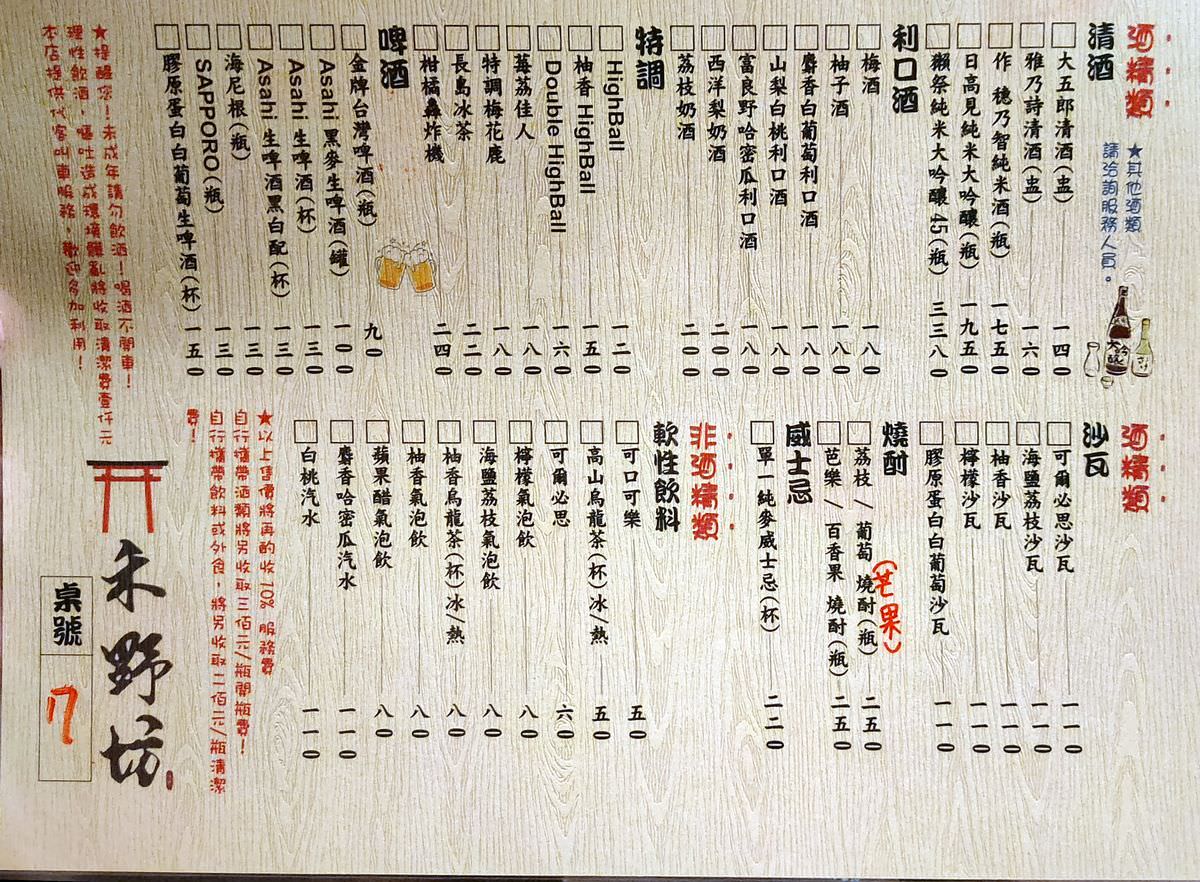 酒精類
★其他酒類
請洽詢服務人員。
清酒
大五郎清酒(盅) 一四0
雅乃詩清酒(盅) 一六0
作 穗乃智純米酒(瓶) 一七五0
日高見純米大吟釀(瓶) 一九五0
獺祭純米大吟釀 45(瓶) 三三八0
利口酒
梅酒 一八0
柚子酒 一八0
麝香白葡萄利口酒 一八0
山梨白桃利口酒 一八0
富良野哈密瓜利口酒 一八0
西洋梨奶酒 二00
荔枝奶酒 二00
特調
HighBall 一二0
柚香 HighBall 一五0
Double HighBall 一六0
莓荔佳人 一八0
特調梅花鹿 一八0
長島冰茶 二二0
柑橘轟炸機 二四0
啤酒
金牌台灣啤酒(瓶) 九0
Asahi 黑麥生啤酒(罐) 一00
Asahi 生啤酒(杯) 一三0
Asahi 生啤酒黑白配(杯) 一三0
海尼根(瓶) 一三0
SAPPORO(瓶) 一三0
膠原蛋白白葡萄生啤酒(杯) 一五0
★提醒您!未成年請勿飲酒!喝酒不開車!
理性飲酒,嘔吐造成環境髒亂將收取清潔費壹仟元
本店提供代客叫車服務,歡迎多加利用!
酒精類
沙瓦
可爾必思沙瓦 一一0
海鹽荔枝沙瓦 一一0
柚香沙瓦 一一0
檸檬沙瓦 一一0
膠原蛋白白葡萄沙瓦 一一0
燒酎
(芒果)
荔枝/ 葡萄 燒酎(瓶) 二五0
芭樂/ 百香果 燒酎(瓶) 二五0
威士忌
單一純麥威士忌(杯) 二二0
非酒精類
軟性飲料
可口可樂 五0
高山烏龍茶(杯)冰/熱 五0
可爾必思 六0
檸檬氣泡飲 八0
海鹽荔枝氣泡飲 八0
柚香烏龍茶(杯)冰/熱 八0
柚香氣泡飲 八0
蘋果醋氣泡飲 八0
麝香哈密瓜汽水 一一0
白桃汽水 一一0
★以上售價將再酌收 10% 服務費
自行攜帶酒類將另收取三佰元/瓶開瓶費!
自行攜帶飲料或外食,將另收取二佰元/瓶清潔
費!
禾野坊
桌號
17